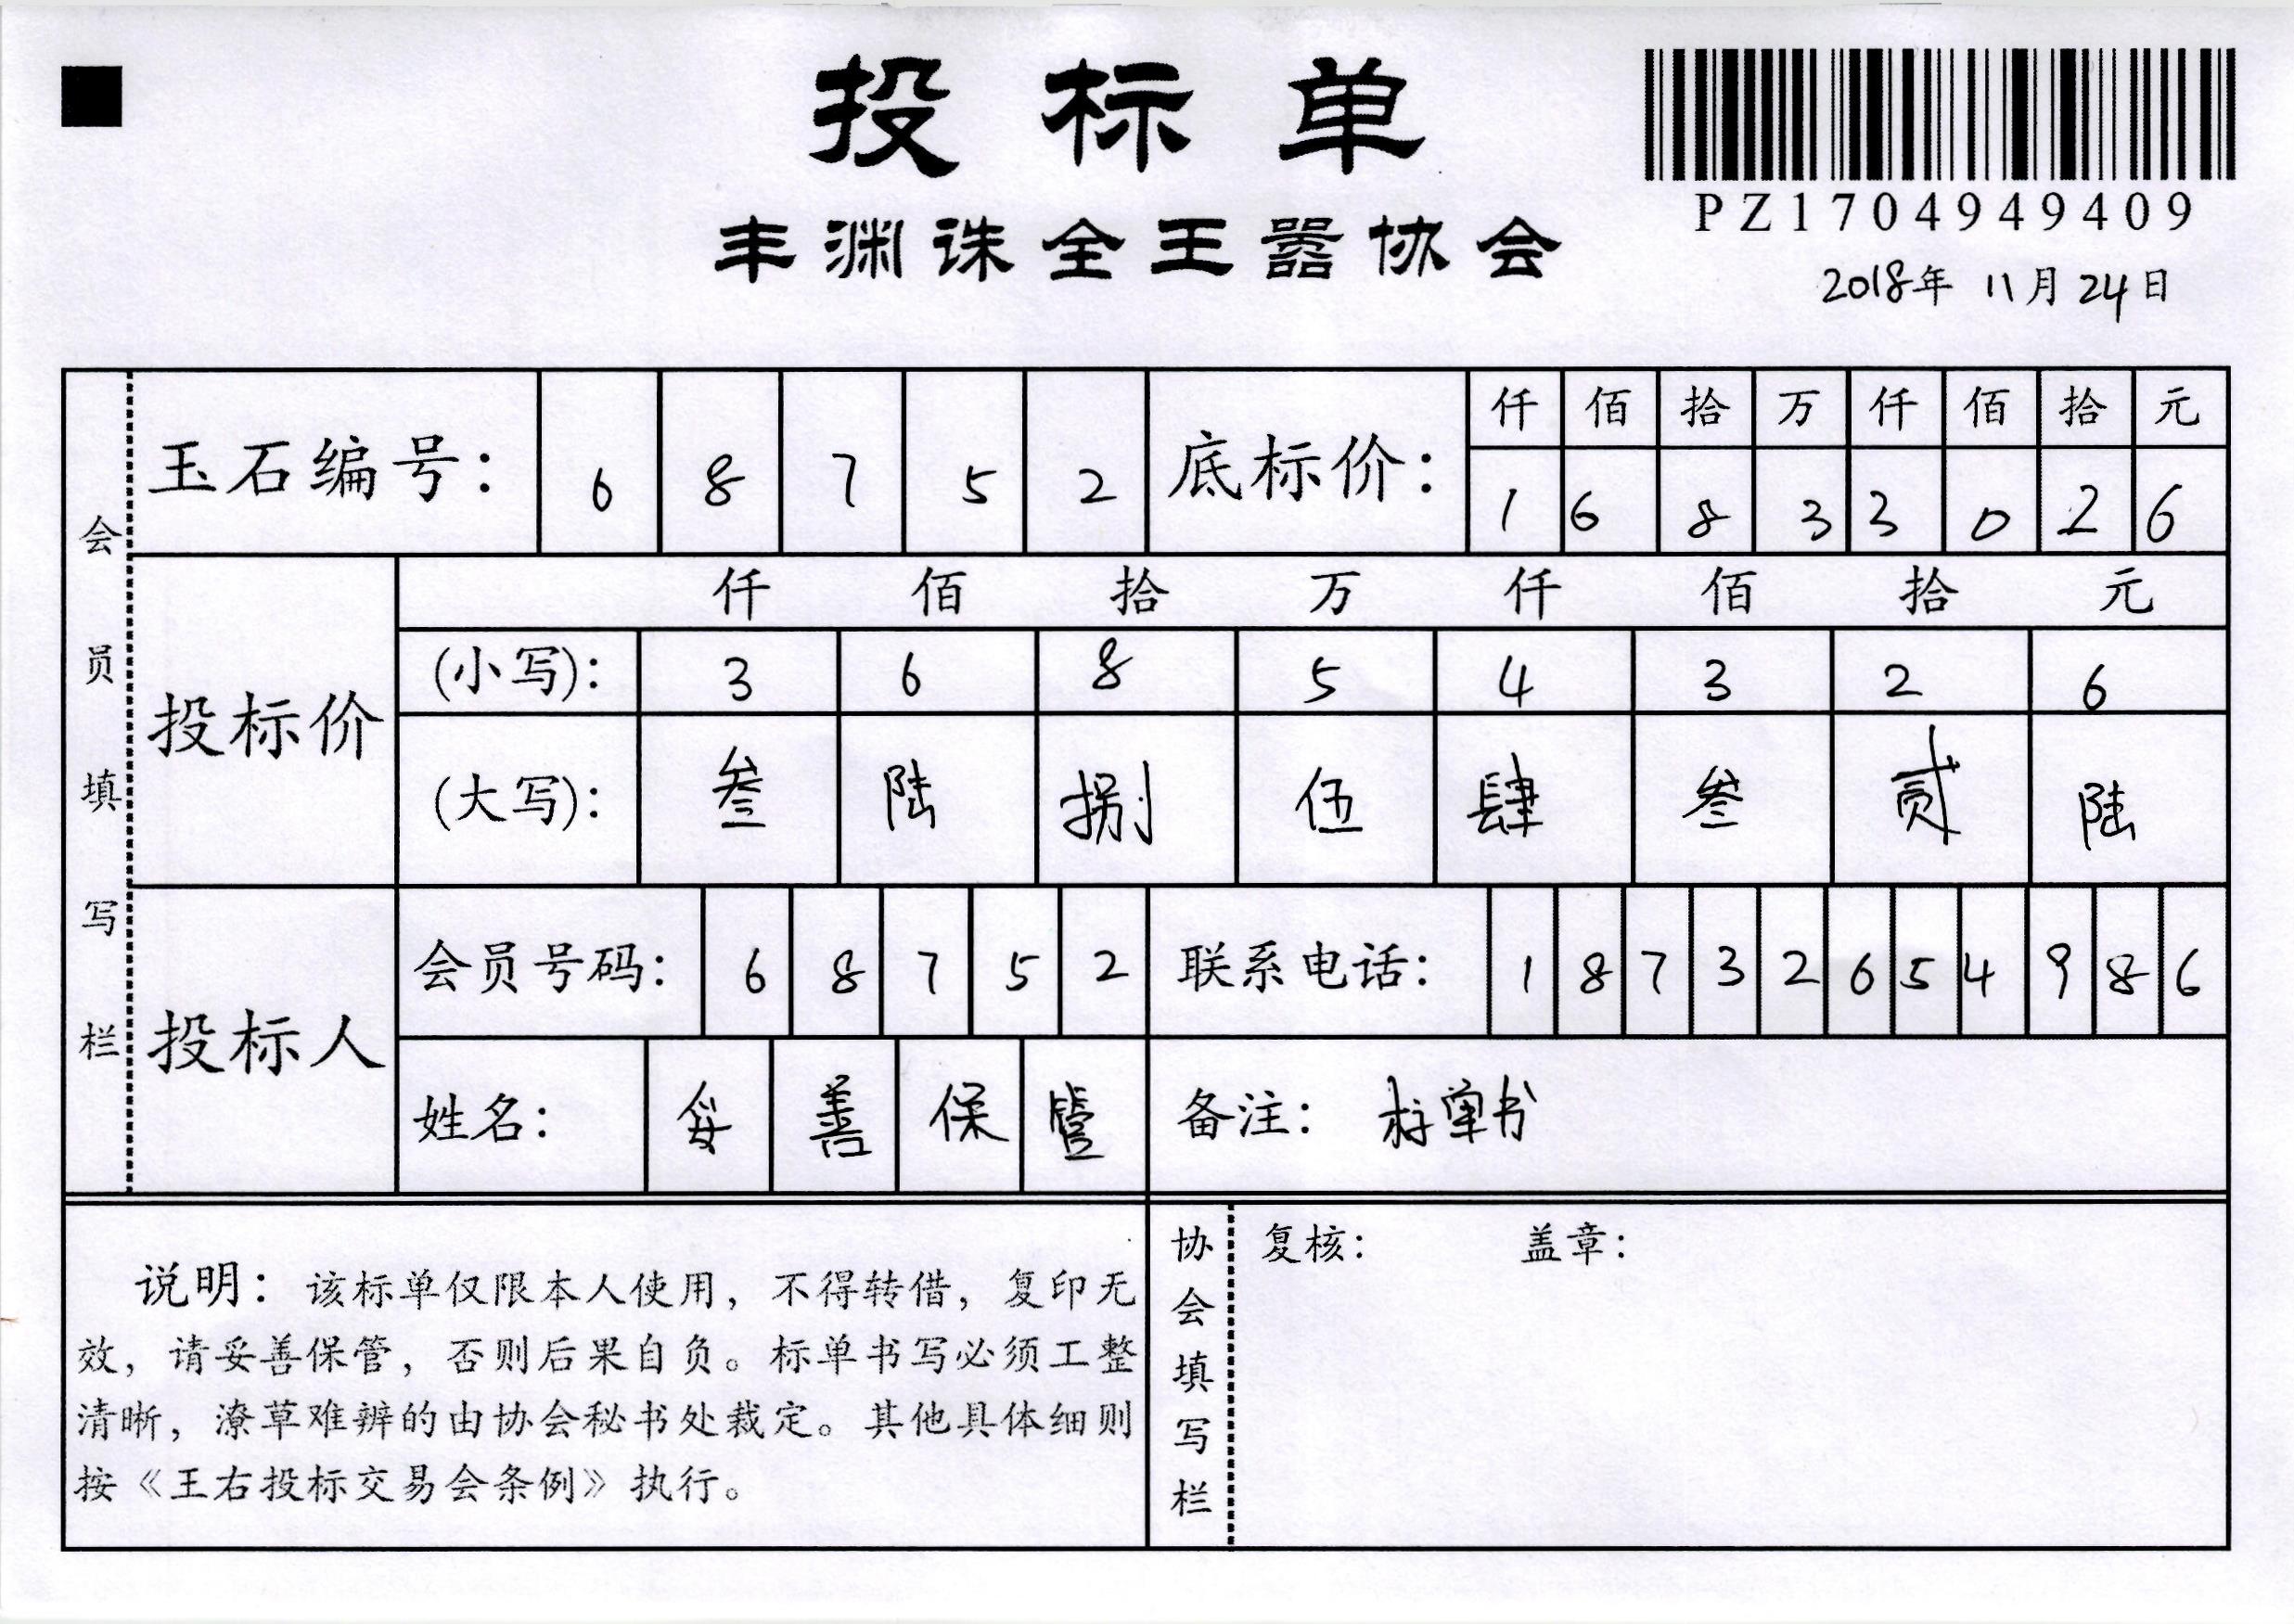 投标单
PZ1704949409
丰渊诛全王嚣协会
2018年 11月24日
会员填写栏
玉石编号: 6 8 7 5 2 底标价: 仟 佰 拾 万 仟 佰 拾 元
1 6 8 3 3 0 2 6
投标价 仟 佰 拾 万 仟 佰 拾 元
(小写): 3 6 8 5 4 3 2 6
(大写): 叁 陆 捌 伍 肆 叁 贰 陆
投标人 会员号码: 6 8 7 5 2 联系电话: 1 8 7 3 2 6 5 4 9 8 6
姓名: 妥 善 保 管 备注: 标单书
说明:该标单仅限本人使用,不得转借,复印无
效,请妥善保管,否则后果自负。标单书写必须工整
清晰,潦草难辨的由协会秘书处裁定。其他具体细则
按《王右投标交易会条例》执行。
协会填写栏
复核: 盖章: